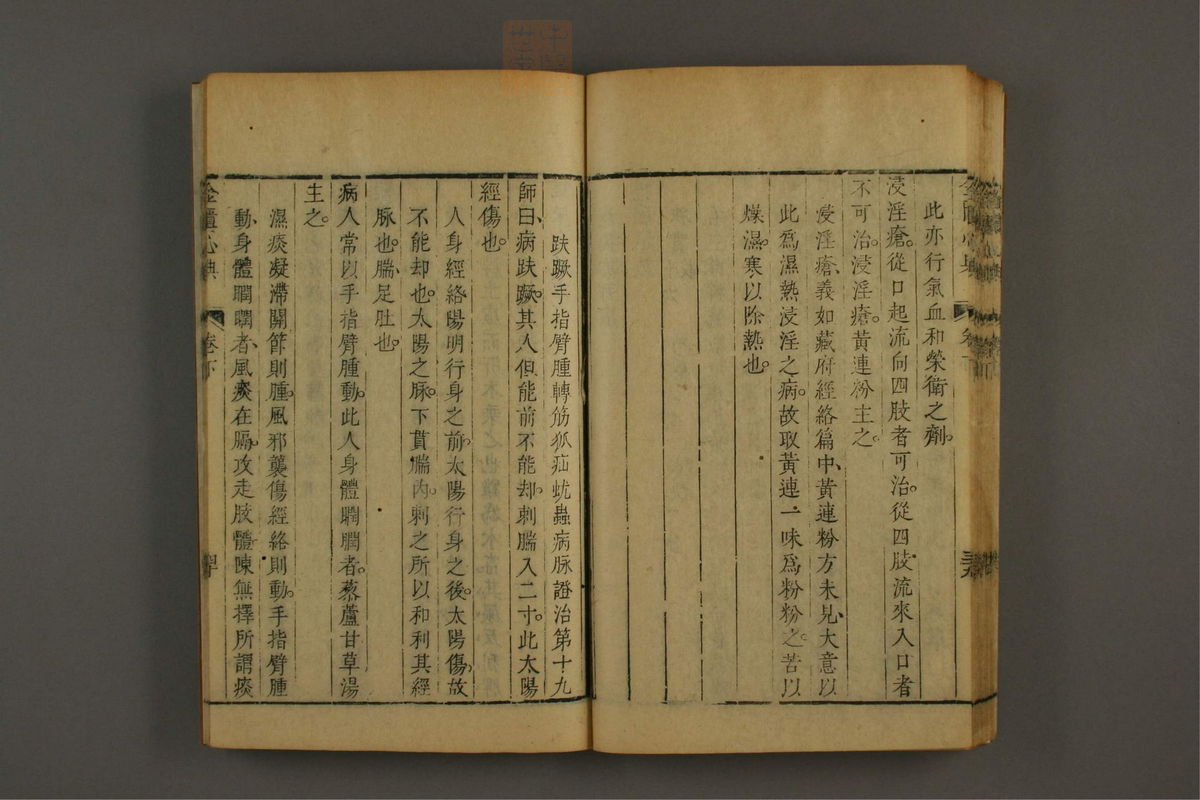 此亦行氣血和榮衛之劑。
浸淫瘡。從口起流向四肢者可治。從四肢流來入口者
不可治。浸淫瘡。黃連粉主之。
浸淫瘡、義如藏府經絡篇中、黃連粉方未見、大意以
此爲濕熱浸淫之病。故取黃連一味爲粉粉之。苦以
燥濕。寒以除熱也。
趺蹶手指臂腫轉筋狐疝蚘蟲病脉證治第十九
師曰、病趺蹶。其人但能前不能却。刺腨入二寸。此太陽
經傷也。
人身經絡、陽明行身之前。太陽行身之後。太陽傷、故
不能却也。太陽之脉、下貫腨內。刺之所以和利其經
脉也。腨、足肚也。
病人常以手指臂腫動。此人身體瞤瞤者。藜蘆甘草湯
主之。
濕痰凝滯關節則腫。風邪襲傷經絡則動。手指臂腫
動、身體瞤瞤者、風痰在膈。攻走肢體。陳無擇所謂痰
金匱心典
卷下